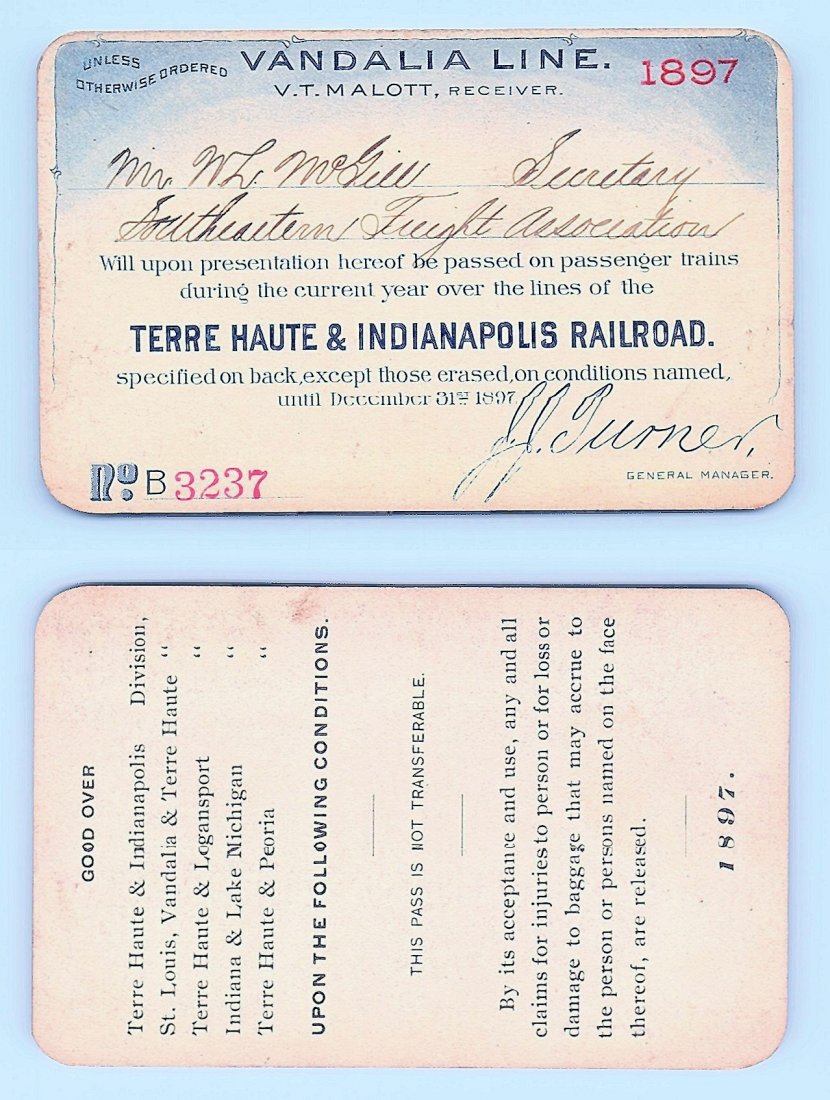 UNLESS
OTHERWISE ORDERED
VANDALIA LINE.
1897
V.T. MALOTT, RECEIVER.
Mr. W L. McGill Secretary
Southeastern Freight Association
Will upon presentation hereof be passed on passenger trains
during the current year over the lines of the
TERRE HAUTE & INDIANAPOLIS RAILROAD.
specified on back, except those erased, on conditions named,
until December 31ST 1897.
J.J. Turner,
GENERAL MANAGER.
No. B 3237
GOOD OVER
Terre Haute & Indianapolis Division,
St. Louis, Vandalia & Terre Haute "
Terre Haute & Logansport "
Indiana & Lake Michigan "
Terre Haute & Peoria "
UPON THE FOLLOWING CONDITIONS.
THIS PASS IS NOT TRANSFERABLE.
By its acceptance and use, any and all
claims for injuries to person or for loss or
damage to baggage that may accrue to
the person or persons named on the face
thereof, are released.
1897.